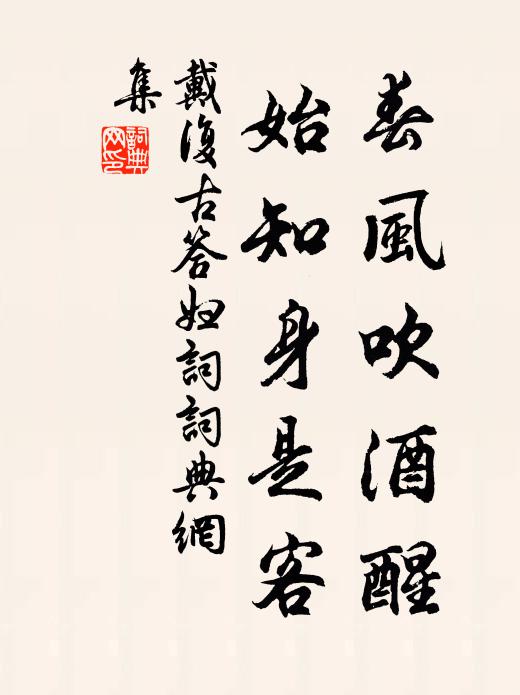 春風吹酒醒
始知身是客
戴復古答妲詞詞典網
集
詞典
网印